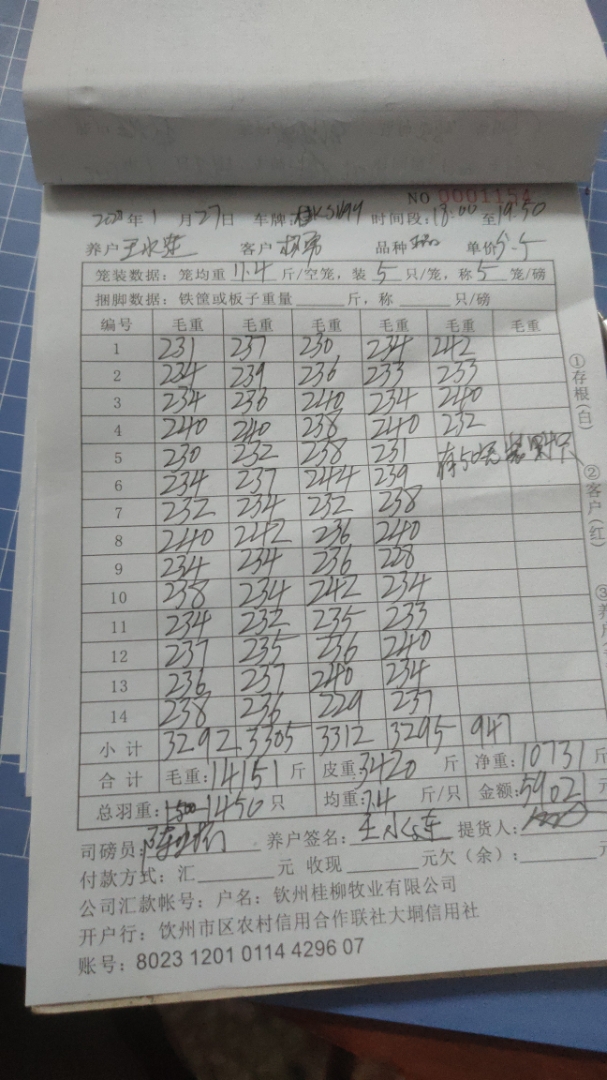 NO 0001154
年1月27日 车牌: 时间段:18:00至19:50
养户 客户 品种 单价5.5
笼装数据:笼均重11.4斤/空笼,装5只/笼,称5笼/磅
捆脚数据:铁筐或板子重量 斤,称 只/磅
编号 毛重 毛重 毛重 毛重 毛重 毛重
1 231 237 230 234 242
2 234 239 236 233 233
3 234 236 240 234 240
4 240 240 238 240 232
5 230 232 238 231
6 234 237 244 239
7 232 234 232 238
8 240 242 236 240
9 234 234 236 228
10 238 234 242 234
11 234 232 235 233
12 237 235 236 240
13 236 237 240 234
14 238 236 229 237
小计 3292 3305 3312 3295 947
合计 毛重:14151斤 皮重:3420斤 净重:10731斤
总羽重:1450只 均重:7.4斤/只 金额:59021元
司磅员: 养户签名: 提货人:
付款方式:汇 元 收现 元欠(余): 元
公司汇款帐号:户名:钦州桂柳牧业有限公司
开户行:钦州市区农村信用合作联社大垌信用社
账号:8023 1201 0114 4296 07
①存根(白)
②客户(红)